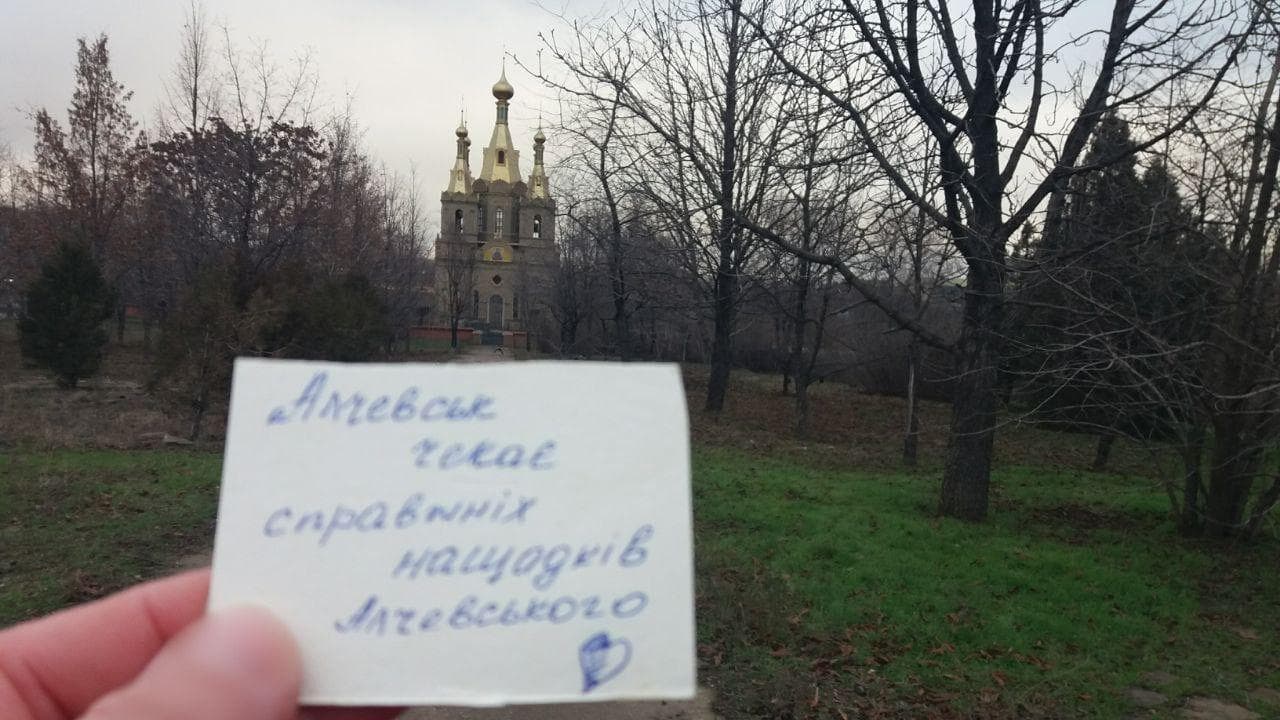 Алчевськ
чекає
справжніх
нащадків
Алчевського